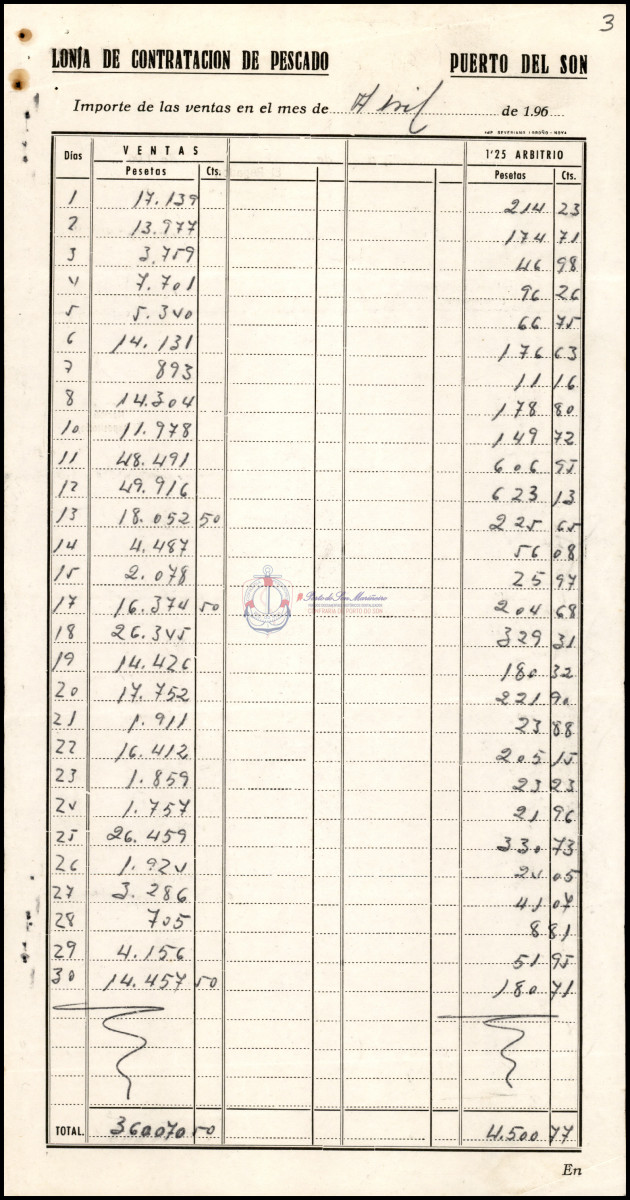 3
LONJA DE CONTRATACION DE PESCADO PUERTO DEL SON
Importe de las ventas en el mes de Abril de 1.96
Días VENTAS 1'25 ARBITRIO
Pesetas Cts. Pesetas Cts.
1 17.139 214 23
2 13.977 174 71
3 3.759 46 98
4 7.701 96 26
5 5.340 66 75
6 14.131 176 63
7 893 11 16
8 14.304 178 80
10 11.978 149 72
11 48.491 606 95
12 49.916 623 13
13 18.052 50 225 65
14 4.487 56 08
15 2.078 25 97
17 16.374 50 204 68
18 26.345 329 31
19 14.426 180 32
20 17.752 221 90
21 1.911 23 88
22 16.412 205 15
23 1.859 23 23
24 1.757 21 96
25 26.459 330 73
26 1.924 24 05
27 3.286 41 07
28 705 8 81
29 4.156 51 95
30 14.457 50 180 71
TOTAL. 360070 50 4.500 77
En
Porto do Son Mariñeiro